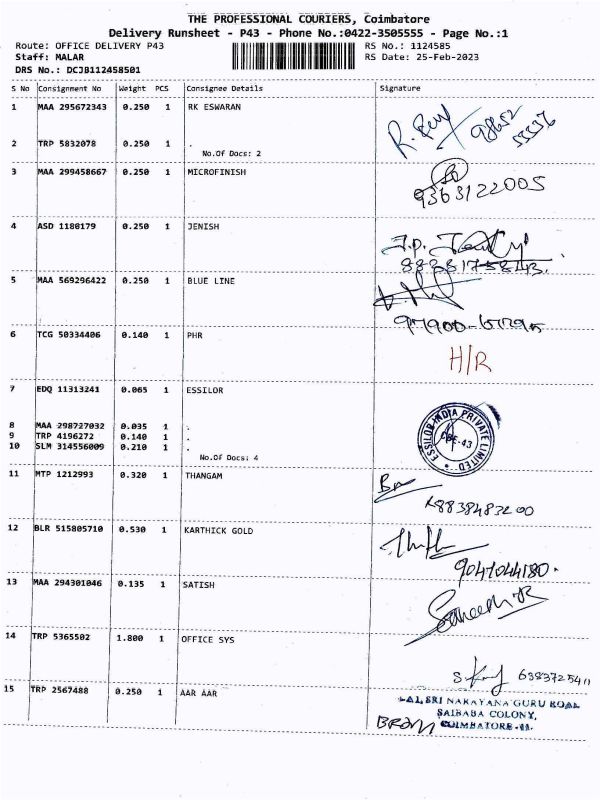 THE PROFESSIONAL COURIERS, Coimbatore
Delivery Runsheet - P43 - Phone No.:0422-3505555 - Page No.:1
Route: OFFICE DELIVERY P43 RS No.: 1124585
Staff: MALAR RS Date: 25-Feb-2023
DRS No.: DCJB112458501
S No Consignment No Weight PCS Consignee Details Signature
1 MAA 295672343 0.250 1 RK ESWARAN
98652
55536
2 TRP 5832078 0.250 1 .
No.Of Docs: 2
3 MAA 299458667 0.250 1 MICROFINISH
9363122005
4 ASD 1180179 0.250 1 JENISH
5 MAA 569296422 0.250 1 BLUE LINE
6 TCG 50334406 0.140 1 PHR
H/R
7 EDQ 11313241 0.065 1 ESSILOR
ESSILOR INDIA PRIVATE LIMITED
CBE-43
8 MAA 298727032 0.035 1 .
9 TRP 4196272 0.140 1 .
10 SLM 314556009 0.210 1 .
No.Of Docs: 4
11 MTP 1212993 0.320 1 THANGAM
12 BLR 515805710 0.530 1 KARTHICK GOLD
9047044180.
13 MAA 294301046 0.135 1 SATISH
14 TRP 5365502 1.800 1 OFFICE SYS
15 TRP 2567488 0.250 1 AAR AAR
SRI NARAYANA GURU ROAD
SAIBABA COLONY,
COIMBATORE-11.